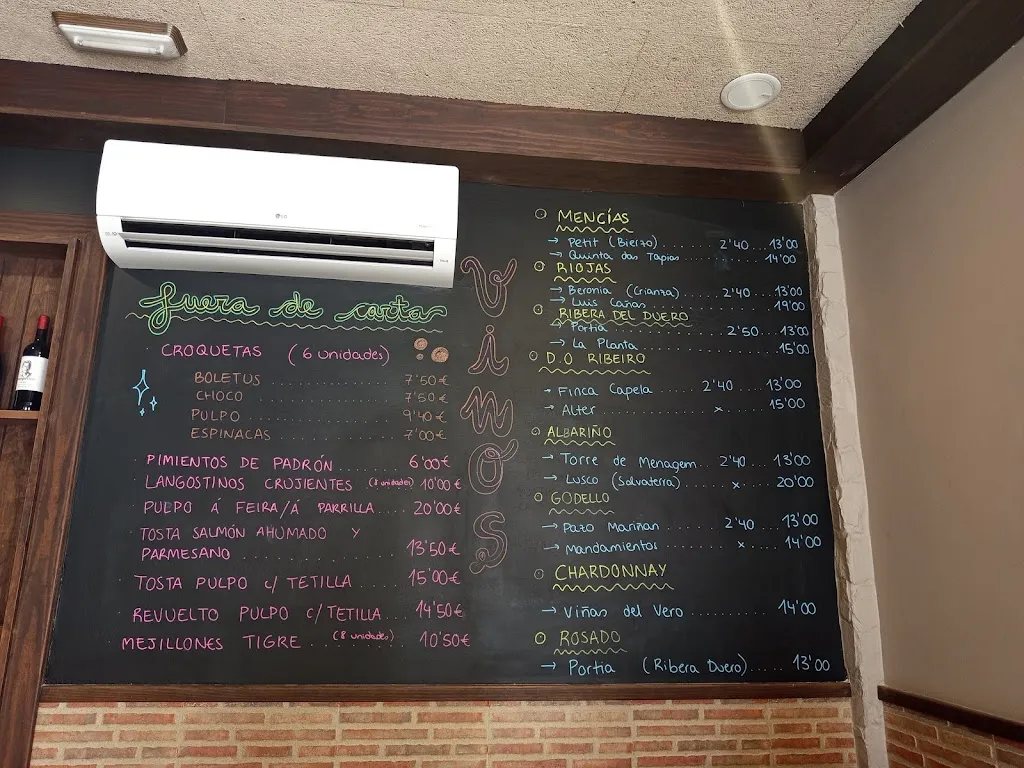 LG
fuera de carta
CROQUETAS (6 unidades)
BOLETUS ............ 7'50€
CHOCO ............ 7'50€
PULPO ............ 9'40€
ESPINACAS ............ 7'00€
PIMIENTOS DE PADRÓN ............ 6'00€
LANGOSTINOS CRUJIENTES (8 unidades) 10'00€
PULPO Á FEIRA/Á PARRILLA ........ 20'00€
TOSTA SALMÓN AHUMADO Y
PARMESANO ............ 13'50€
TOSTA PULPO c/ TETILLA ........ 15'00€
REVUELTO PULPO C/TETILLA .... 14'50€
MEJILLONES TIGRE (8 unidades) .... 10'50€
VinOS
MENCÍAS
→ Petit (Bierzo) ........ 2'40 ... 13'00
→ Quinta das Tapias ............ 14'00
RIOJAS
→ Beronia (Crianza) ........ 2'40 .... 13'00
→ Luis Cañas ............ 19'00
RIBERA DEL DUERO
→ Portia ............ 2'50 .... 13'00
→ La Planta ............ 15'00
D.O RIBEIRO
→ Finca Capela ........ 2'40 .... 13'00
→ Alter ............ x ........ 15'00
ALBARIÑO
→ Torre de Menagem .. 2'40 .... 13'00
→ Lusco (Salvaterra) ........ x ..... 20'00
GODELLO
→ Pazo Mariñan ........ 2'40 ... 13'00
→ Mandamientos ........ x ..... 14'00
CHARDONNAY
→ Viñas del Vero ............ 14'00
ROSADO
→ Portia (Ribera Duero) ...... 13'00